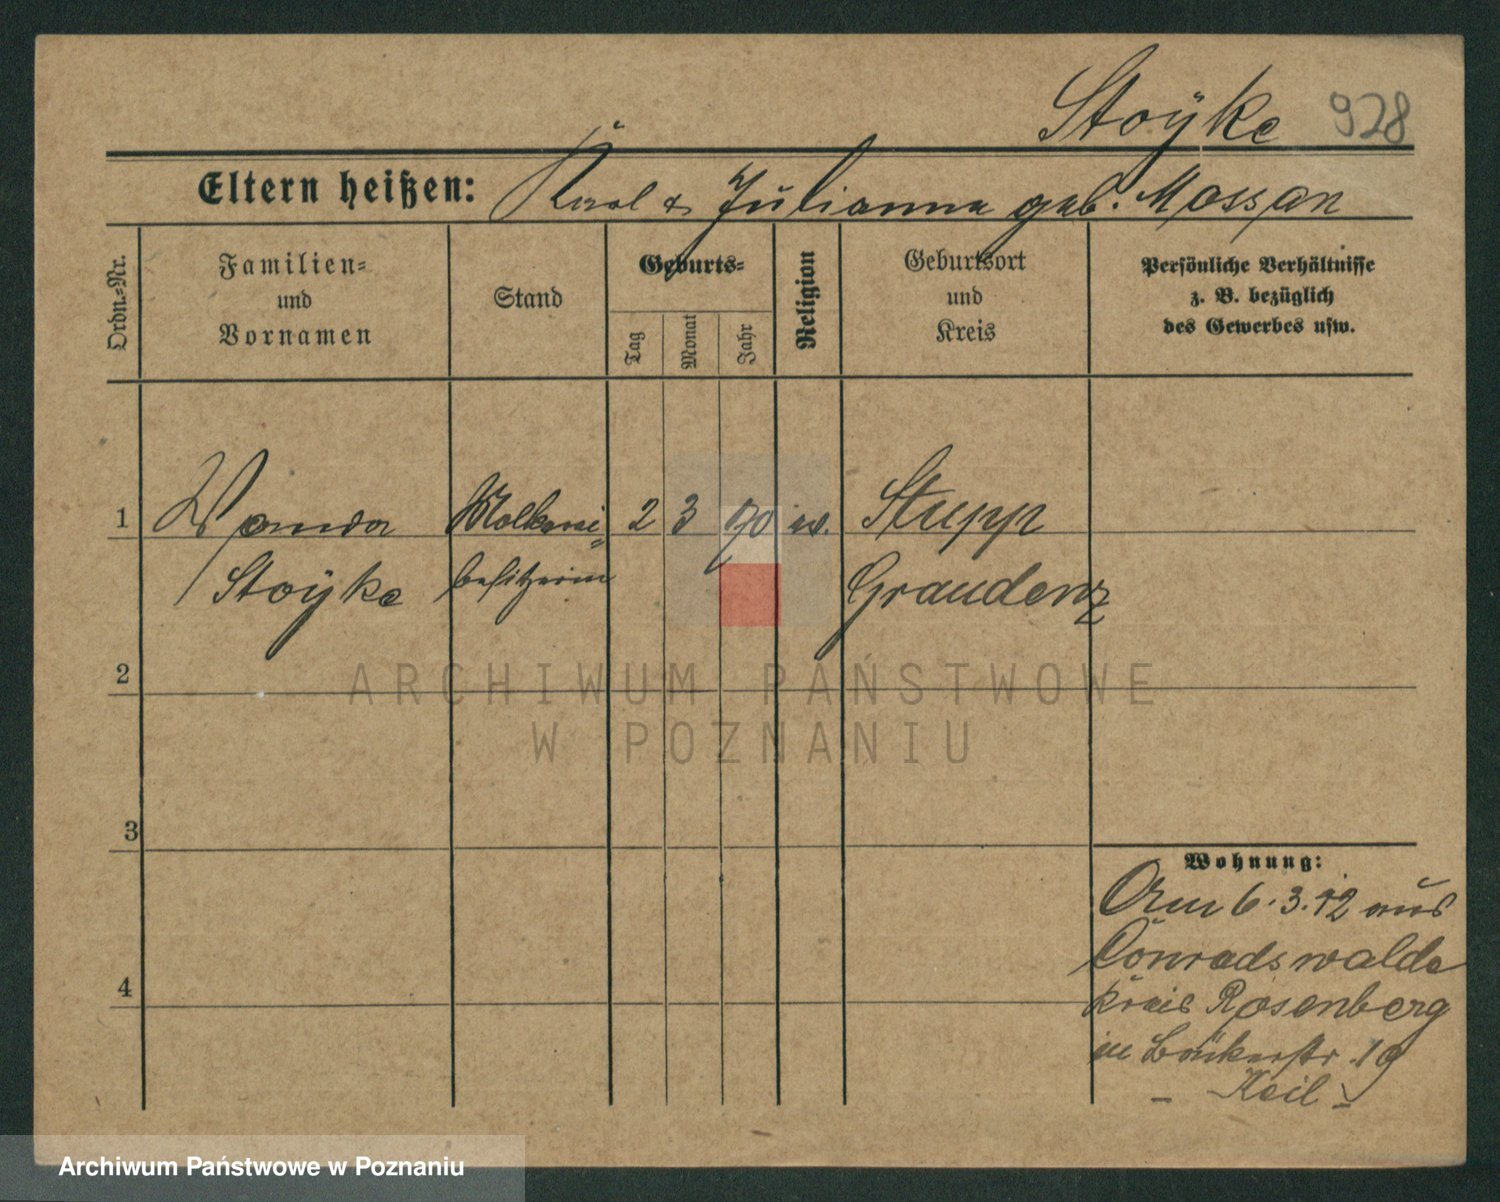 Stoÿke 928
Eltern heißen: Karl & Julianna geb. Mossan
Ordn.-Nr.
Familien-
und
Vornamen
Stand
Geburts-
Tag
Monat
Jahr
Religion
Geburtsort
und
Kreis
Persönliche Verhältnisse
z. B. bezüglich
des Gewerbes usw.
1 Wanda Molkerei- 2 3 90 ev. Stupp
Stoÿke besitzerin Graudenz
2
3
4
Wohnung:
Am 6.3.12 aus
Conradswalde
Kreis Rosenberg
in Bäckerstr. 19
- Keil -
ARCHIWUM PAŃSTWOWE
W POZNANIU
Archiwum Państwowe w Poznaniu